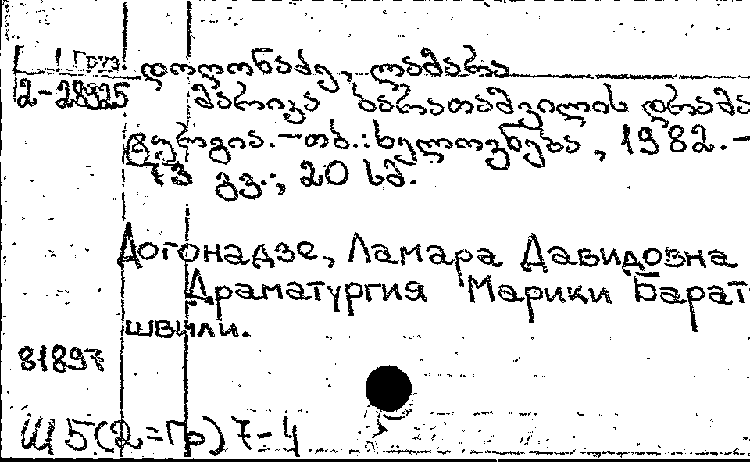 Груз.
2-28925
დოღონაძე, ლამარა
მარიკა ბარათაშვილის დრამა
ტურგია. – თბ.: ხელოვნება, 1982. –
73 გვ.; 20 სმ.
Догонадзе, Ламара Давидовна
Драматургия Марики Барат
швили.
81897
Ш5(2=Гр)7-4